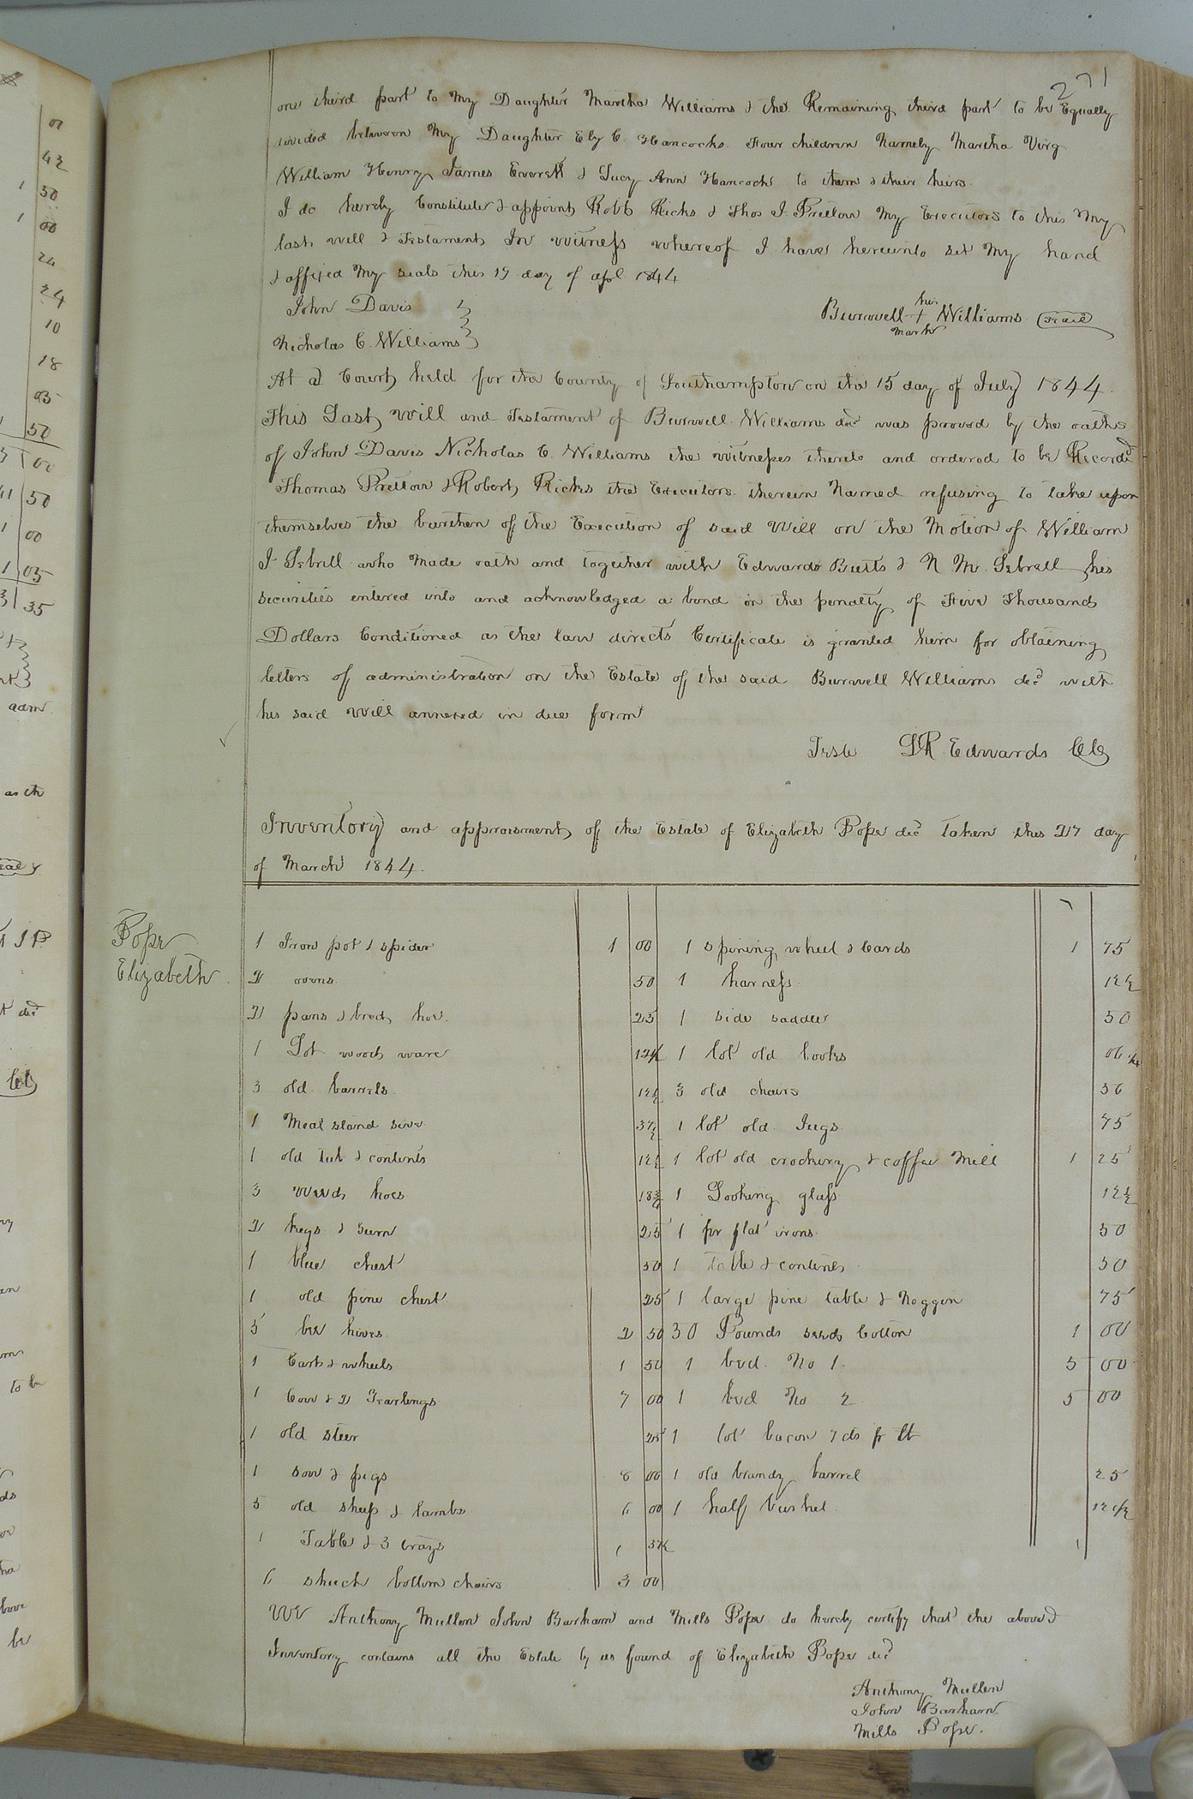 271
one third part to My Daughter Martha Williams & the Remaining third part to be Equally
divided between My Daughter Ely C. Hancocks Four children Namely Martha Virg
William Henry James Everett & Lucy Ann Hancock to them & their heirs
I do hereby Constitute & appoint Robt Ricks & Thos J. Pretlow My Executors to this My
last will & Testament In witness whereof I have hereunto set My hand
& affixed My seals this 19 day of apl 1844
John Davis
his
Burwell + Williams Seal
mark
Nicholas C. Williams
At a Court held for the County of Southampton on the 15 day of July 1844
This Last will and Testament of Burwell Williams decd was proved by the oaths
of John Davis Nicholas C. Williams the witnesses thereto and ordered to be Recorded
Thomas Pretlow & Robert Ricks the Executors therein Named refusing to take upon
themselves the burthen of the Execution of said Will on the Motion of William
J. Sebrell who Made oath and together with Edwards Butts & N M. Sebrell his
securities entered into and acknowledged a bond in the penalty of Five Thousand
Dollars Conditioned as the law directs Certificate is granted him for obtaining
letters of administration on the Estate of the said Burwell Williams decd with
his said will annexed in due form
Teste LR. Edwards Clk
Inventory and appraisment of the Estate of Elizabeth Pope decd taken this 27 day
of March 1844.
Pope
Elizabeth
1 Iron pot & spider 1 00 1 spining wheel & Cards 1 75
2 ovens 50 1 harness 12½
2 pans & bred hoe 25 1 side saddle 50
1 Lot wood ware 12½ 1 lot old books 06¼
3 old barrels 12½ 3 old chairs 50
1 Meal stand sive 37½ 1 lot old Jugs 75
1 old tub & contents 12½ 1 lot old crockery & coffee Mill 1 25
3 weeds hoes 18¾ 1 Looking glass 12½
2 kegs & 25 1 pr flat irons 50
1 blue chest 50 1 table & contents 50
1 old pine chest 25 1 large pine table & Noggin 75
5 bee hives 2 50 30 Pounds seed Cotton 1 00
1 Cart & wheels 1 50 1 bed No 1 5 00
1 Cow & 2 Yearlings 7 00 1 bed No 2 5 00
1 old steer 25 1 lot bacon 7 cts pr lb
1 sow & pigs 6 00 1 old brandy barrel 25
5 old sheep & lambs 6 00 1 half bushel 12½
1 Table & 3 trays 1 37½ 1
6 bottom chairs 3 00
We Anthony Mullen John Barham and Mills Pope do hereby certify that the above
Inventory contains all the Estate by us found of Elizabeth Pope decd
Anthony Mullen
John Barham
Mills Pope.